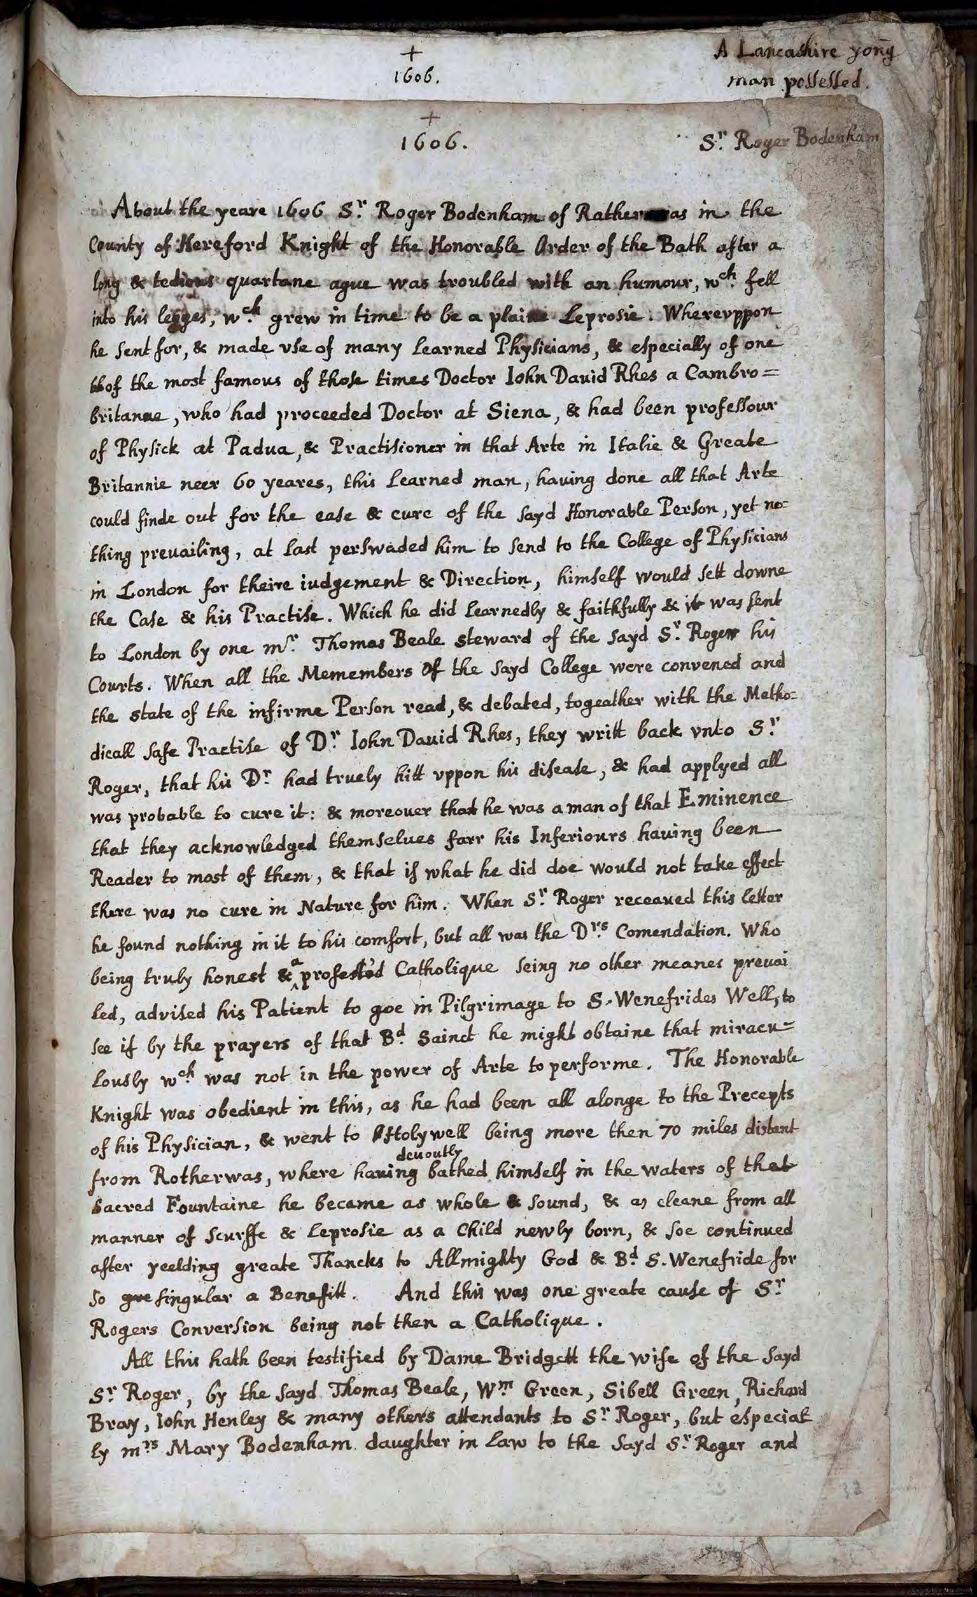 +
1606.
A Lancashire yong
man possessed.
+
1606.
Sr. Roger Bodenham
About the yeare 1606 Sr Roger Bodenham of Rotherwas in the
County of Hereford Knight of the Honorable Order of the Bath after a
long & tedious quartane ague was troubled with an humour, wch. fell
into his legges, wch. grew in time to be a plaine Leprosie. Wherevppon
he sent for, & made vse of many learned Physicians, & especially of one
of the most famous of those times Doctor Iohn Dauid Rhes a Cambro=
britanne, who had proceeded Doctor at Siena, & had been professour
of Physick at Padua, & Practisioner in that Arte in Italie & Greate
Britannie neer 60 yeares, this learned man, hauing done all that Arte
could finde out for the ease & cure of the sayd Honorable Person, yet no=
thing preuailing, at last perswaded him to send to the College of Physicians
in London for theire iudgement & Direction, himself would sett downe
the Case & his Practise. Which he did learnedly & faithfully & it was sent
to London by one mr. Thomas Beale steward of the sayd Sr. Roger his
Courts. When all the Memembers of the sayd College were convened and
the state of the infirme Person read, & debated, togeather with the Metho=
dicall safe Practise of Dr. Iohn Dauid Rhes, they writt back vnto Sr
Roger, that his Dr. had truely hitt vppon his disease, & had applyed all
was probable to cure it: & moreover that he was a man of that Eminence
that they acknowledged themselues farr his Inferiours hauing been
Reader to most of them, & that if what he did doe would not take effect
there was no cure in Nature for him. When Sr. Roger receaued this letter
he found nothing in it to his comfort, but all was the Drs. Comendation. Who
being truly honest & a professed Catholique seing no other meanes preuai
led, advised his Patient to goe in Pilgrimage to S. Wenefrides Well, to
see if by the prayers of that Bd. Sainct he might obtaine that miracu=
lously wch was not in the power of Arte to performe. The Honorable
Knight was obedient in this, as he had been all alonge to the Precepts
of his Physician, & went to Holywell being more then 70 miles distant
from Rotherwas, where hauing devoutly bathed himself in the waters of that
Sacred Fountaine he became as whole & sound, & as cleane from all
manner of scurffe & Leprosie as a Child newly born, & soe continued
after yeelding greate Thancks to Allmighty God & Bd. S. Wenefride for
so singular a Benefitt. And this was one greate cause of Sr
Rogers Conversion being not then a Catholique.
All this hath been testified by Dame Bridgett the wife of the sayd
Sr. Roger, by the sayd Thomas Beale, Wm Green, Sibell Green, Richard
Bray, Iohn Henley & many others attendants to Sr. Roger, but especial
ly mrs Mary Bodenham daughter in Law to the sayd Sr. Roger and
32